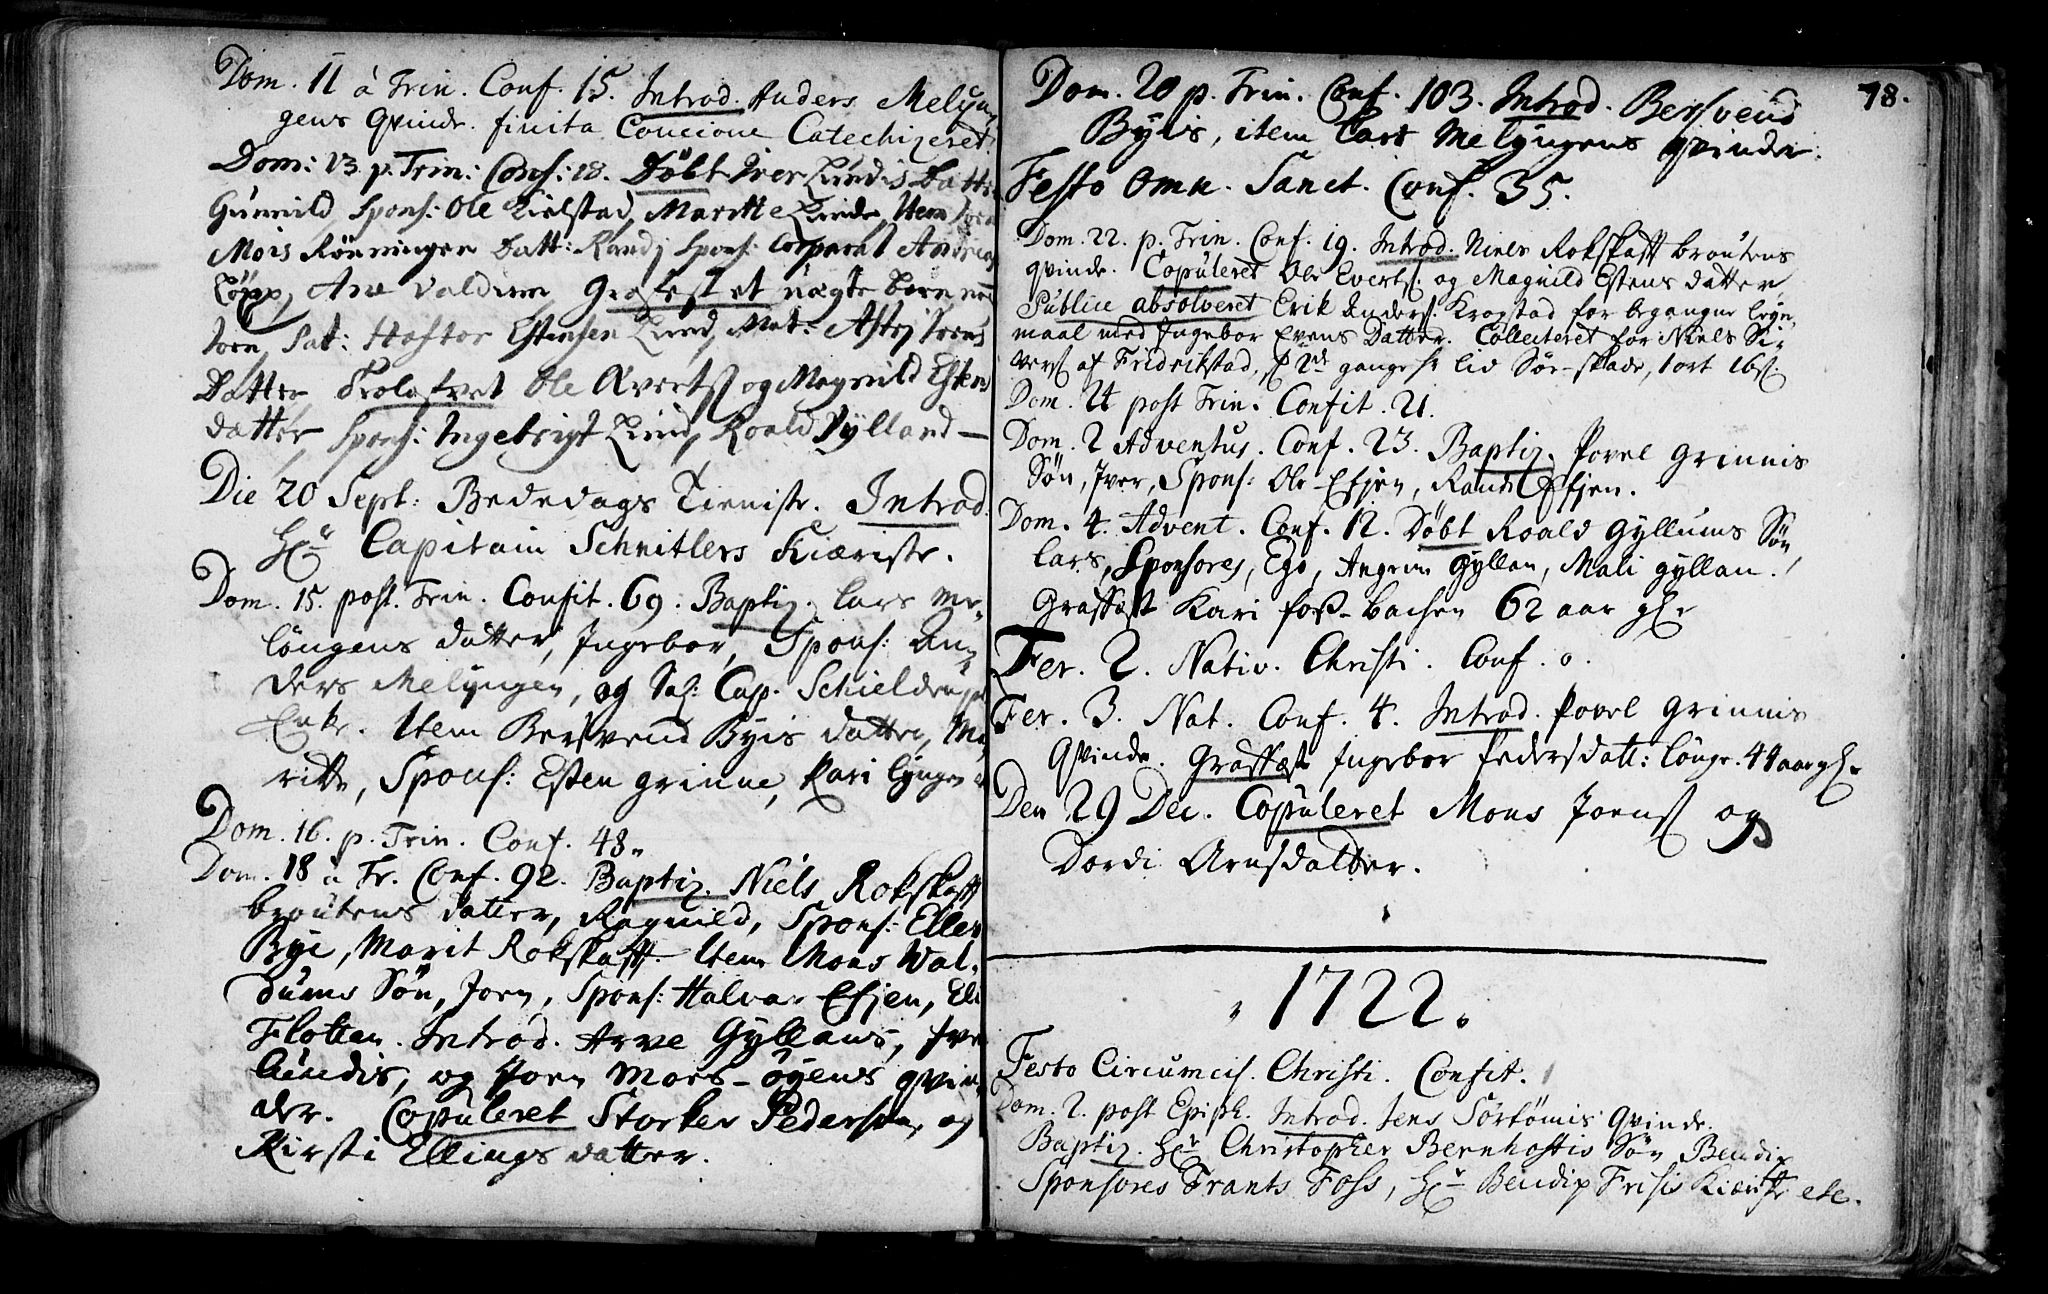 Dom. 11 à Trin. Conf. 15. Introd. Anders Melyn
gens Qvinde. finita Concione Catechizeret.
Dom: 13 p. Trin: Conf: 18. Döbt Iver Lundis Datter
Gunnild, Spons: Ole Kielstad, Maritte Lunde, Item
Mois Rönningen Datt: Randj Spons: Corporal Andreas
Löpp, Ane Valdum, Grafestet uægte barn
Joen, Pat: Haftor Estensen Lund, Mat: Astrj Joens
Datter, Trolofvet Ole Evertß og Magnild Estens
datter, Spons: Ingebrigt Lund, Roald Jylland —
Die 20 Sept: Bededags Tieniste. Introd.
Hr Capitain Schnitlers Kiæriste.
Dom. 15. post. Trin. Confit. 69. Baptiz. Lars Me-
löngens datter, Ingebor, Spons: An-
ders Melyngen, og Sal: Cap. Schieldrups
Enke. Item Bersvend Byis datter, Ma
ritte, Spons: Esten grinne, Kari lyngen
Dom. 16. p. Trin. Conf. 48.
Dom. 18 à Tr. Conf. 92. Baptiz. Niels Rokskaft
broutens datter, Ragnild, Spons: Ellen
Bye, Marit Rokskaft. Item Mons Wal-
dums Sön, Joen, Spons: Halvar Efjen, Eli
Flotten. Introd. Arve Gyllans, Iver
Lundis, og Joen Moes-öyens qvin
der. Copuleret Storker Pedersen, og
Kirsti Ellings datter.
78.
Dom. 20 p. Trin. Conf. 103. Introd. Bersvend
Byis, item Lars Melyngens qvinde.
Festo Omn. Sanct. Conf. 35.
Dom. 22. p. Trin. Conf. 19. Introd. Niels Rokskaft broutens
qvinde. Copuleret Ole Evertß. og Magnild Estens datter
Publice absolveret Erik Anders: Krogstad for begangne leye-
maal med Ingebor Evens Datter. Collecteret for Niels Si-
vers af Fridrikstad, 2de gange lid Söe-skade, 1 ort 16ß.
Dom. 24 post Trin. Confit. 21.
Dom. 2 Adventus. Conf. 23. Baptiz. Povel Grinnis
Sön, Iver, Spons: Ole Efjen, Randi Efjen.
Dom. 4. Advent. Conf. 12. Döbt Roald Gyllums Sön,
Lars, Sponsores, Ego, Angrim Gyllan, Mali gyllan.
Graffæst Kari foß-bachen 62 aar gl.
Fer. 2. Nativ. Christi. Conf. 0.
Fer. 3. Nat. Conf. 4. Introd. Povel Grinnis
Qvinde. Graffæst Ingebor Pedersdatt: Lönge. 44 aar gl.
Den 29 Dec. Copuleret Mons Joenß og
Dordi Arnsdatter.
1722.
Festo Circumcis. Christi. Confit. 1
Dom. 2. post Epiph. Introd. Jens Sörtömis Qvinde.
Baptiz. Hr Christopher Bernhoftis Sön Bendix
Sponsores Frants Foss, Hr Bendix Frisis Kiæriste etc.